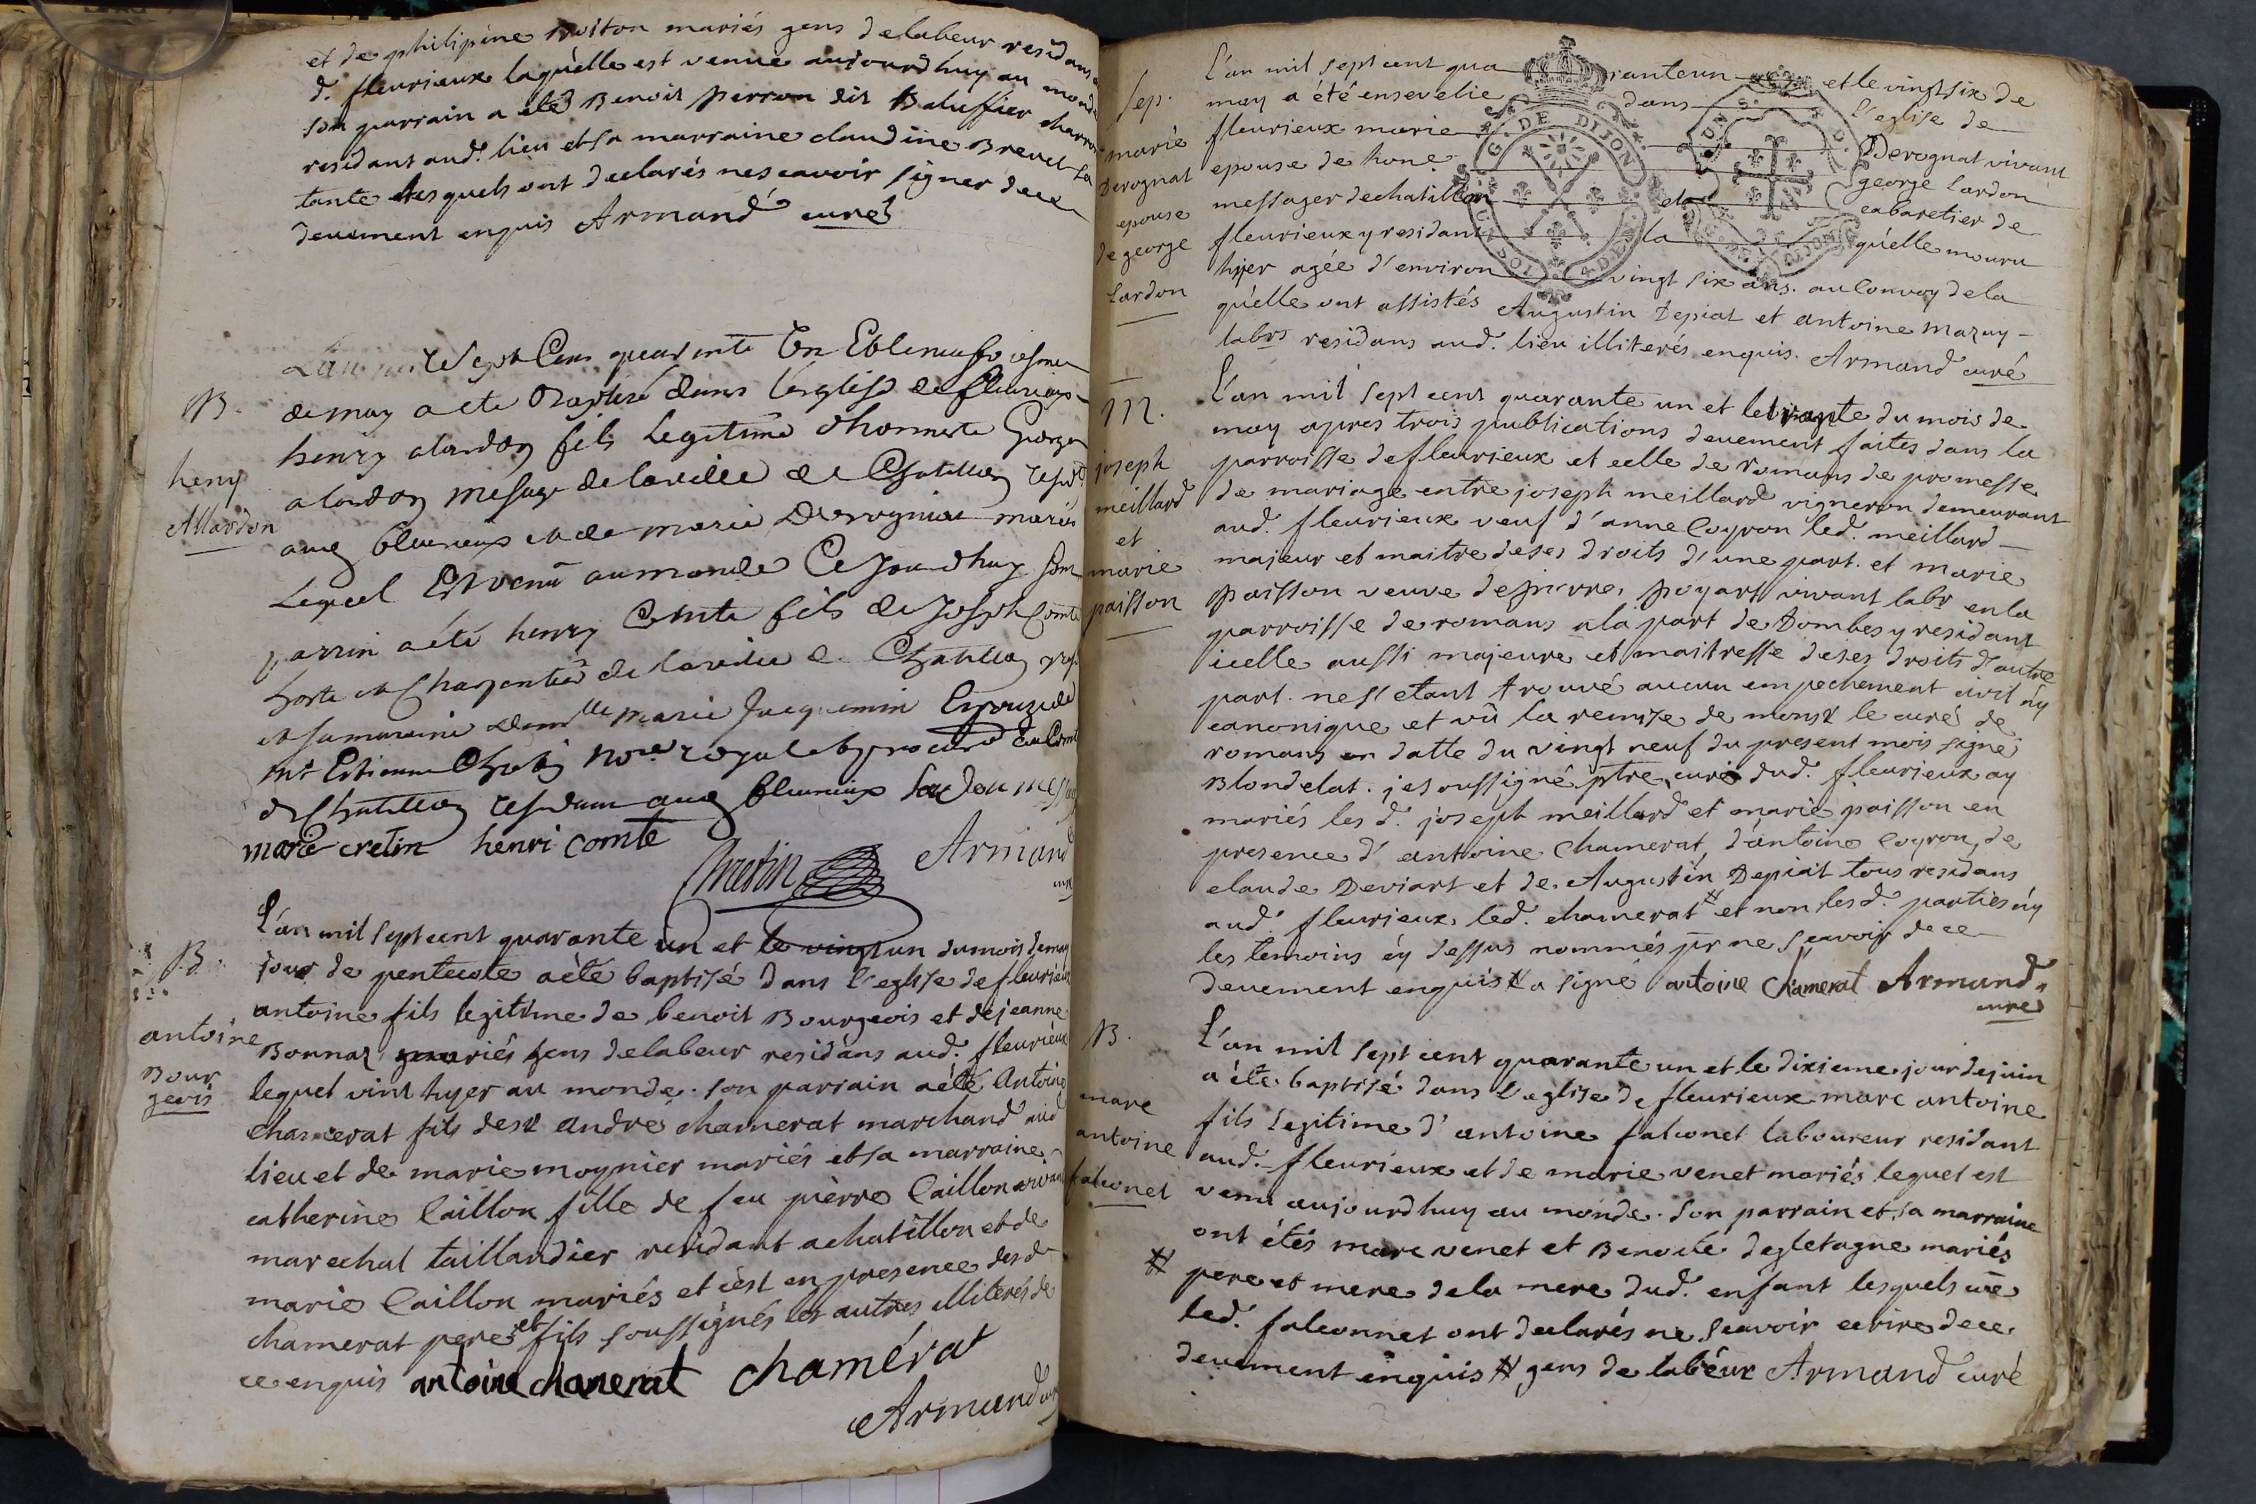 et de philipine noiton mariés gens delabeur residans
d. fleurieux laquelle est venue aujourdhuy au monde
son parrain a été Benoit perron dit Baluffier
residant aud. lieu et sa marraine claudine Brevet sa
tante lesquels ont declarés nescavoir signer dece
deuement enquis Armand curé
B.
heny
Allardon
sept Cens quarante Un Et le
de may a ete Baptisé dans leglise de fleurieux
henry alardon fils legitime dhonneste George
alardon messager de laville de Chatillon
aud fleurieux et de marie Derognat mariés
Lequel Est venu aumonde Ce Jourdhuy son
parrin a été henry Comte fils de Joseph Comte
et Charpentier de laville de Chatillon
et sa maraine demlle marie Jacquemin Epouze de
mr Estienne Chretin nore royal et procureur
de Chatillon residant aud fleurieux
marie cretin henri comte
Chretin Armand
curé
B.
antoine
Bour
geois
L'an mil sept cent quarante un et le vingt un dumois demay
jour de pentecote a été baptisé dans l'eglise de fleurieux
antoine fils legitime de benoit Bourgeois et dejeanne
Bonnaz mariés gens delabeur residans aud. fleurieux
lequel vint hyer au monde. son parrain a été Antoine
chamerat fils desr andré chamerat marchand aud
lieu et de marie moynier mariés et sa marraine
catherine Caillon fille de feu pierre Caillon vivant
marechal taillandier residant achatillon et de
marie Caillon mariés et c'est en presence desd.
chamerat pere et fils soussignés les autres illiterés de
ce enquis antoine chamerat chamérat
Armand curé
Sep.
marie
Derognat
epouse
de george
Lardon
L'an mil sept cent quaranteun et le vingt six de
may a été ensevelie dans l'eglise de
fleurieux marie Derognat vivant
epouse de hone george Lardon
messager dechatillon et cabaretier de
fleurieux y residant la qu'elle mourut
hyer agée d'environ vingt six ans. au Convoy dela
qu'elle ont assistés Augustin Depiat et antoine mazuy
labrs residans aud. lieu illiterés enquis. Armand curé
G. DE DIJON
M.
joseph
meillard
et
marie
paisson
L'an mil sept cent quarante un et le trente du mois de
may apres trois publications deuement faites dans la
parroisse defleurieux et celle de romans de promesse
de mariage entre joseph meillard vigneron demeurant
aud. fleurieux veuf d'anne Coyron led. meillard
majeur et maitre deses droits d'une part. et marie
paisson veuve depierre poyart vivant labr en la
parroisse deromans ala part de Dombes y residant
icelle aussi majeure et maitresse deses droits d'autre
part. ness etant trouvé aucun empechement civil ny
canonique et vû la remise de monsr le curé de
romans en datte du vingt neuf du present mois signé
Blondelat. je soussigné ptre curé dud. fleurieux ay
mariés les d. joseph meillard et marie paisson en
presence d'antoine Chamerat, d'antoine Coyron, de
claude Deviart et de Augustin Depiat tous residans
aud. fleurieux led. chamerat # et non lesd. parties ny
les temoins cy dessus nommés pr ne scavoir dece
deuement enquis # a signé antoine chamerat Armand
curé
B.
marc
antoine
falconet
L'an mil sept cent quarante un et le dixieme jour dejuin
a été baptisé dans l'eglise de fleurieux marc antoine
fils legitime d'antoine falconet laboureur residant
aud. fleurieux et de marie venet mariés lequel est
venu aujourdhuy au monde. son parrain et sa marraine
ont étés marc venet et Benoite degletagne mariés
# pere et mere dela mere dud. enfant lesquels
led. falconnet ont declarés ne scavoir ecrire dece
deuement enquis # gens de labeur Armand curé